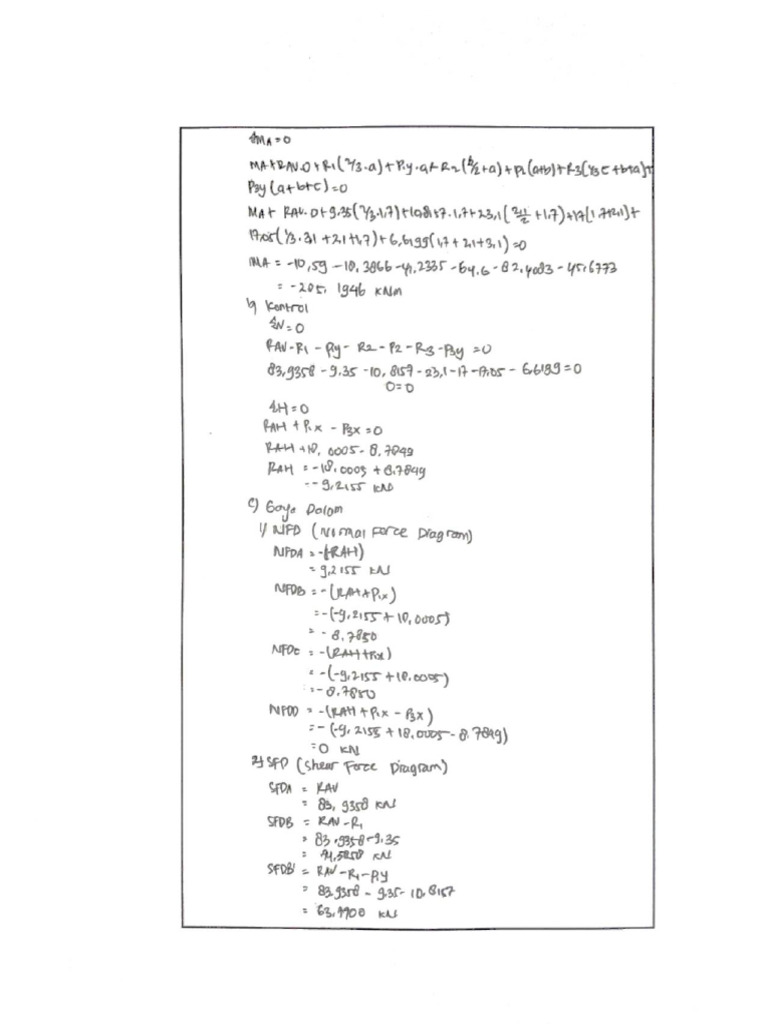 ΣMA = 0
MA + RAV.0 + R1(2/3.a) + P1y.a + R2(b/2+a) + P2(a+b) + R3(1/3c+b+a) +
P3y(a+b+c) = 0
MA + RAV.0 + 9.35(2/3.1,7) + 10,8157.1,7 + 23,1(2,1/2 + 1,7) + 17(1,7+2,1) +
17,05(1/3.3,1 + 2,1 + 1,7) + 6,6199(1,7 + 2,1 + 3,1) = 0
MA = -10,59 - 18,3866 - 41,2335 - 64,6 - 82,4083 - 45,6773
= -205,1946 kNm
b) Kontrol
ΣV = 0
RAV - R1 - P1y - R2 - P2 - R3 - P3y = 0
83,9358 - 9,35 - 10,8157 - 23,1 - 17 - 17,05 - 6,6199 = 0
0 = 0
ΣH = 0
RAH + P1x - P3x = 0
RAH + 18,0005 - 8,7849
RAH = -18,0005 + 8,7849
= -9,2155 kN
c) Gaya Dalam
1) NFD (Normal Force Diagram)
NFDA = -(RAH)
= 9,2155 kN
NFDB = -(RAH + P1x)
= -(-9,2155 + 18,0005)
= -8,7850
NFDC = -(RAH + P1x)
= -(-9,2155 + 18,0005)
= -8,7850
NFDD = -(RAH + P1x - P3x)
= -(-9,2155 + 18,0005 - 8,7849)
= 0 kN
2) SFD (Shear Force Diagram)
SFDA = RAV
= 83,9358 kN
SFDB = RAV - R1
= 83,9358 - 9,35
= 74,5858 kN
SFDB' = RAV - R1 - P1y
= 83,9358 - 9,35 - 10,8157
= 63,7700 kN